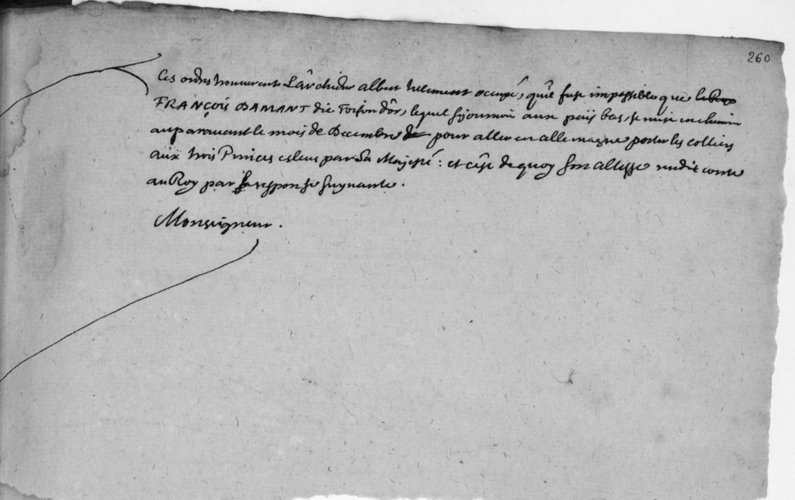 260
Ces ordres trouverent L'archiduc albert tellement occupé, qu'il fust impossible que
FRANÇOIS DAMANT dit Toison d'or, lequel sejournoit aux païs bas, se mist en chemin
auparavant le mois de Decembre pour aller en allemagne porter les colliers
aux trois Princes esleus par sa Majesté : et c'est de quoy son altesse rendit conte
au Roy par sa response suyvante.
Monseigneur.